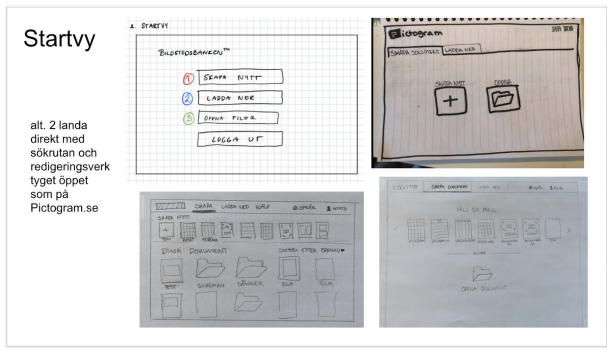 Startvy
alt. 2 landa
direkt med
sökrutan och
redigeringsverk
tyget öppet
som på
Pictogram.se
1. STARTVY
BILDSTÖDSBANKEN™
1 SKAPA NYTT
2 LADDA NER
3 ÖPPNA FILER
LOGGA UT
Pictogram
SKAPA DOKUMENT LADDA NER
SKAPA NYTT ÖPPNA
SKAPA LADDA NED HJÄLP SPRÅK KONTO
SKAPA NYTT
DINA DOKUMENT SORTERA EFTER
SCHEMAN SÅNGER BLA BLA
LOGOTYP SKAPA DOKUMENT LADDA NED
VÄLJ EN MALL
ÖPPNA DOKUMENT